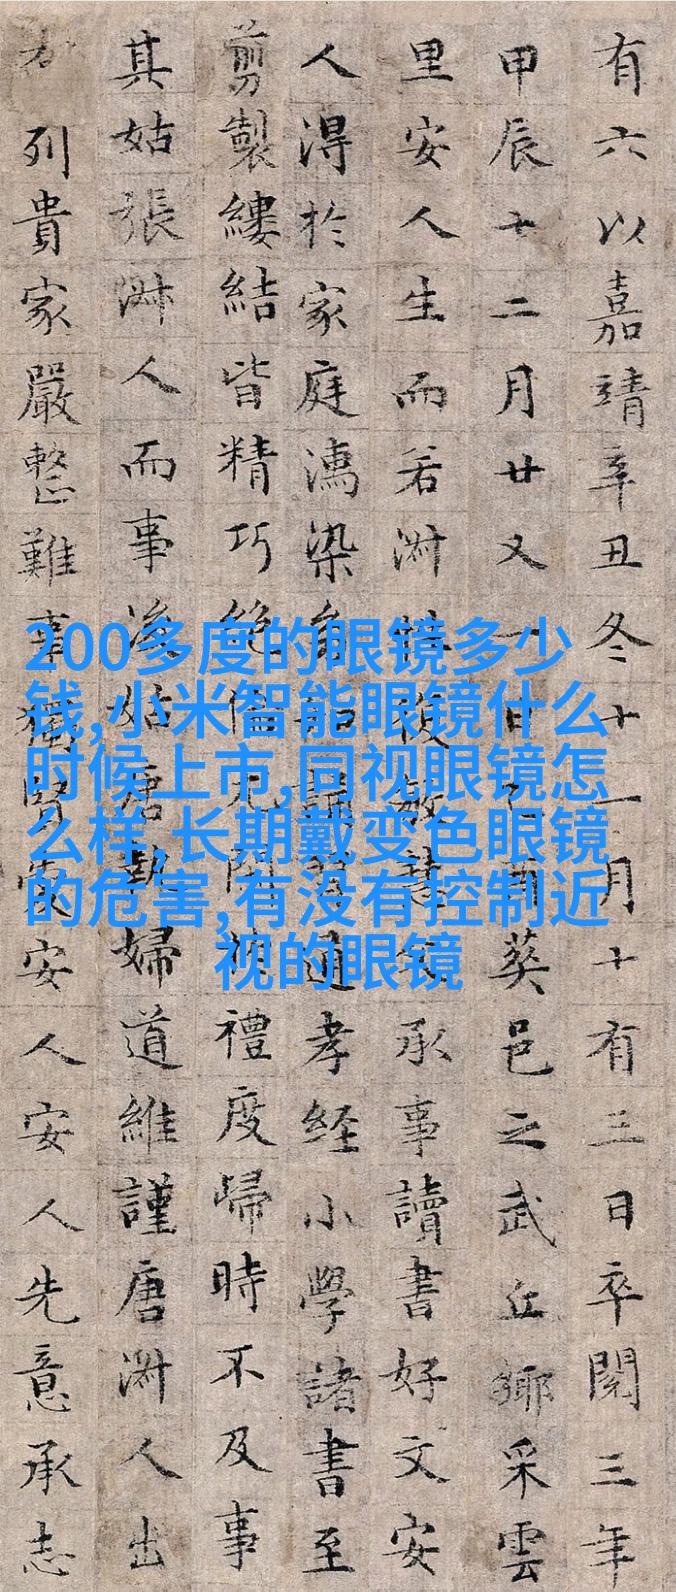 有六以嘉靖辛丑冬十一月十有三日卒閱三年
甲辰十二月廿又一日乙酉葬邑之武丘鄉采雲
里安人生而若淑性敏承事讀書好文安
人淂於家庭濡染能誦通孝經小學諸書至
剪製縷結皆精巧絶倫凡閑禮度歸時不及事
其姑張淑人而事後姑唐執婦道維謹唐淑人出
列貴家嚴整難事獨賢安人安人先意承志
200多度的眼镜多少
钱,小米智能眼镜什么
时候上市,同视眼镜怎
么样,长期戴变色眼镜
的危害,有没有控制近
视的眼镜